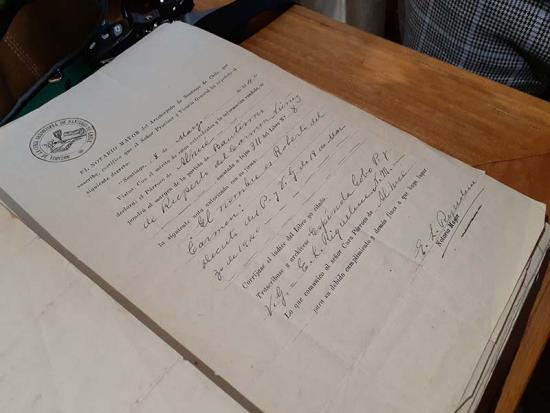 EL NOTARIO MAYOR del Arzobispado de Santiago de Chile, que
suscribe, certifica que el Señor Provisor y Vicario General ha expedido el
siguiente decreto:
Santiago, 8 de Marzo de 19
Vistos: Con el mérito de estos antecedentes y la información rendida, se
declara: el Párroco de Alhué
pondrá al margen de la partida de Bautismo
de Ruperto del Carmen
contenida en la hoja 311 del libro N.º 8
la siguiente nota autorizada con su firma:
El nombre es Roberto del
Carmen.
Decreto del P. y V. G. de 8 de Mar
zo de 1940
Corríjase el índice del Libro ya citado.
Transcríbase y archívese
V. G. = E. L. Riquelme N. M.
Lo que comunico al señor Cura Párroco de Alhué
para su debido cumplimiento y demás fines a que haya lugar
Notario Mayor